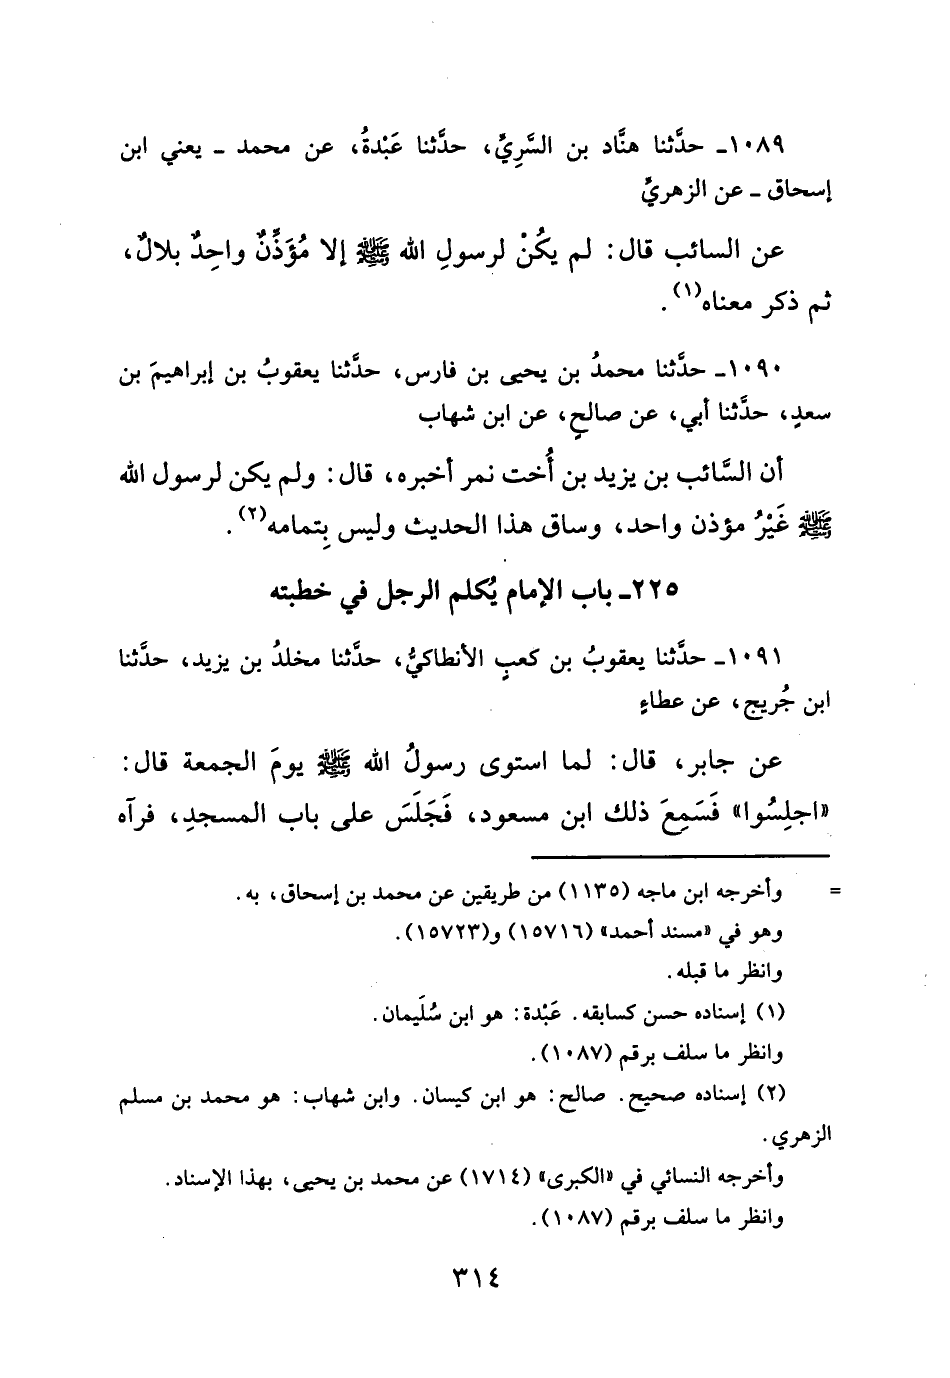 ١٠٨٩ـ حدَّثنا هنَّاد بن السَّرِيِّ، حدَّثنا عَبْدةُ، عن محمد ـ يعني ابن
إسحاق ـ عن الزهريِّ
عن السائب قال: لم يكُنْ لرسولِ الله ﷺ إلا مُؤَذِّنٌ واحِدٌ بلالٌ،
ثم ذكر معناه(١).
١٠٩٠ـ حدَّثنا محمدُ بن يحيى بن فارس، حدَّثنا يعقوبُ بن إبراهيمَ بن
سعدٍ، حدَّثنا أبي، عن صالحٍ، عن ابن شهاب
أن السَّائب بن يزيد بن أُخت نمر أخبره، قال: ولم يكن لرسول الله
ﷺ غَيْرُ مؤذن واحد، وساق هذا الحديث وليس بِتمامه(٢).
٢٢٥ـ باب الإمام يُكلم الرجل في خطبته
١٠٩١ـ حدَّثنا يعقوبُ بن كعبٍ الأنطاكيُّ، حدَّثنا مخلدُ بن يزيد، حدَّثنا
ابن جُريج، عن عطاءٍ
عن جابر، قال: لما استوى رسولُ الله ﷺ يومَ الجمعة قال:
«اجلِسُوا» فَسَمِعَ ذلك ابن مسعود، فَجَلَسَ على باب المسجدِ، فرآه
= وأخرجه ابن ماجه (١١٣٥) من طريقين عن محمد بن إسحاق، به.
وهو في «مسند أحمد» (١٥٧١٦) و(١٥٧٢٣).
وانظر ما قبله.
(١) إسناده حسن كسابقه. عَبْدة: هو ابن سُلَيمان.
وانظر ما سلف برقم (١٠٨٧).
(٢) إسناده صحيح. صالح: هو ابن كيسان. وابن شهاب: هو محمد بن مسلم
الزهري.
وأخرجه النسائي في «الكبرى» (١٧١٤) عن محمد بن يحيى، بهذا الإسناد.
وانظر ما سلف برقم (١٠٨٧).
٣١٤